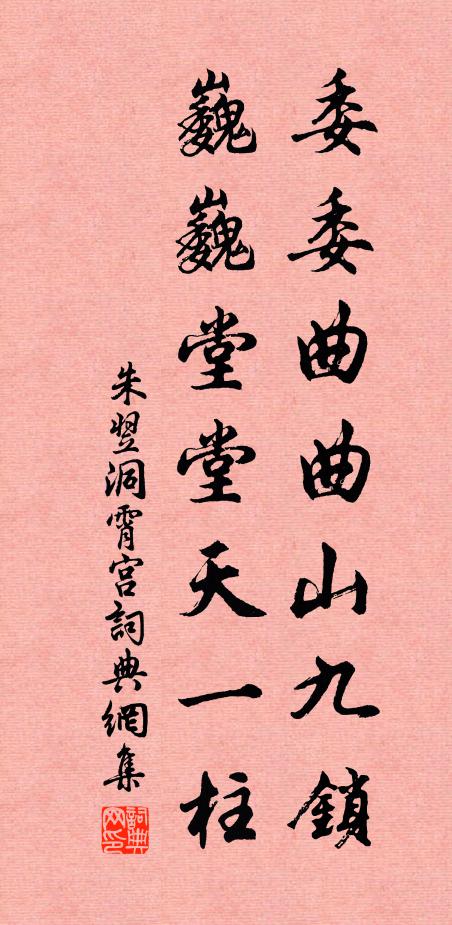 委委曲曲山九鎖
巍巍堂堂天一柱
朱翌洞霄宮詞典網集
詞典
网印